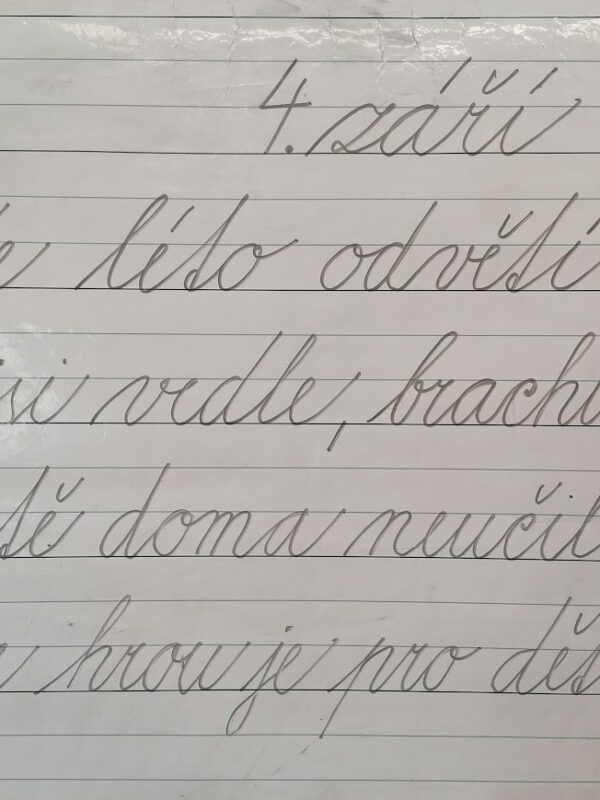 4. září
léto odvětí
vedle, brachu
doma neučil
hrou je pro